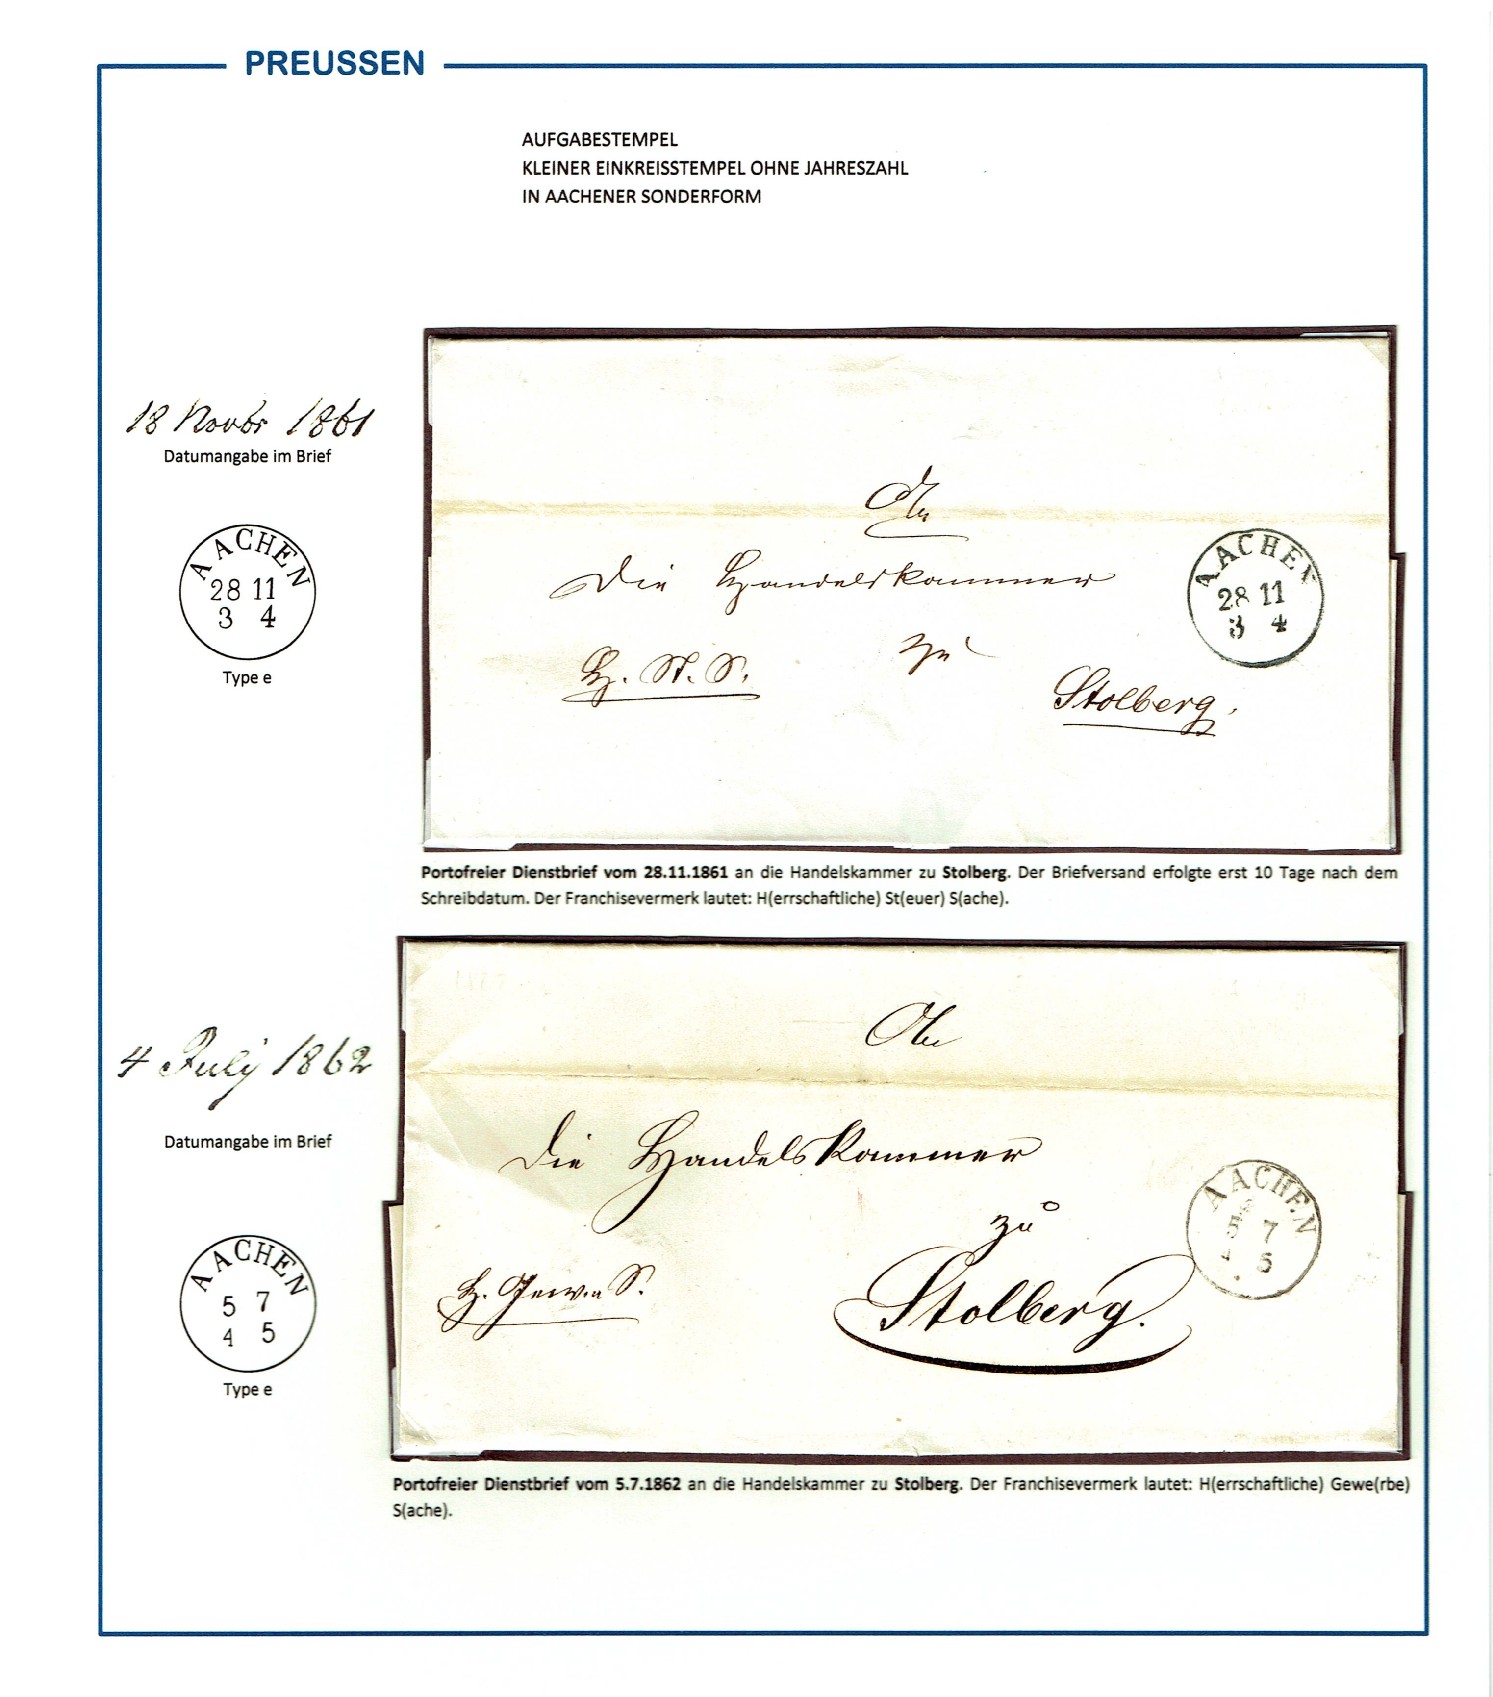 PREUSSEN
AUFGABESTEMPEL
KLEINER EINKREISSTEMPEL OHNE JAHRESZAHL
IN AACHENER SONDERFORM
18 Novbr 1861
Datumangabe im Brief
AACHEN
28 11
3 4
Type e
An
die Handelskammer
zu
H. St. S.
Stolberg.
AACHEN
28 11
3 4
Portofreier Dienstbrief vom 28.11.1861 an die Handelskammer zu Stolberg. Der Briefversand erfolgte erst 10 Tage nach dem
Schreibdatum. Der Franchisevermerk lautet: H(errschaftliche) St(euer) S(ache).
4 July 1862
Datumangabe im Brief
AACHEN
5 7
4 5
Type e
An
die Handelskammer
zu
H. Gewe S.
Stolberg.
AACHEN
5 7
5
Portofreier Dienstbrief vom 5.7.1862 an die Handelskammer zu Stolberg. Der Franchisevermerk lautet: H(errschaftliche) Gewe(rbe)
S(ache).